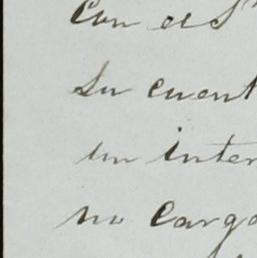 Con el S
Su cuent
un inter
no cargo